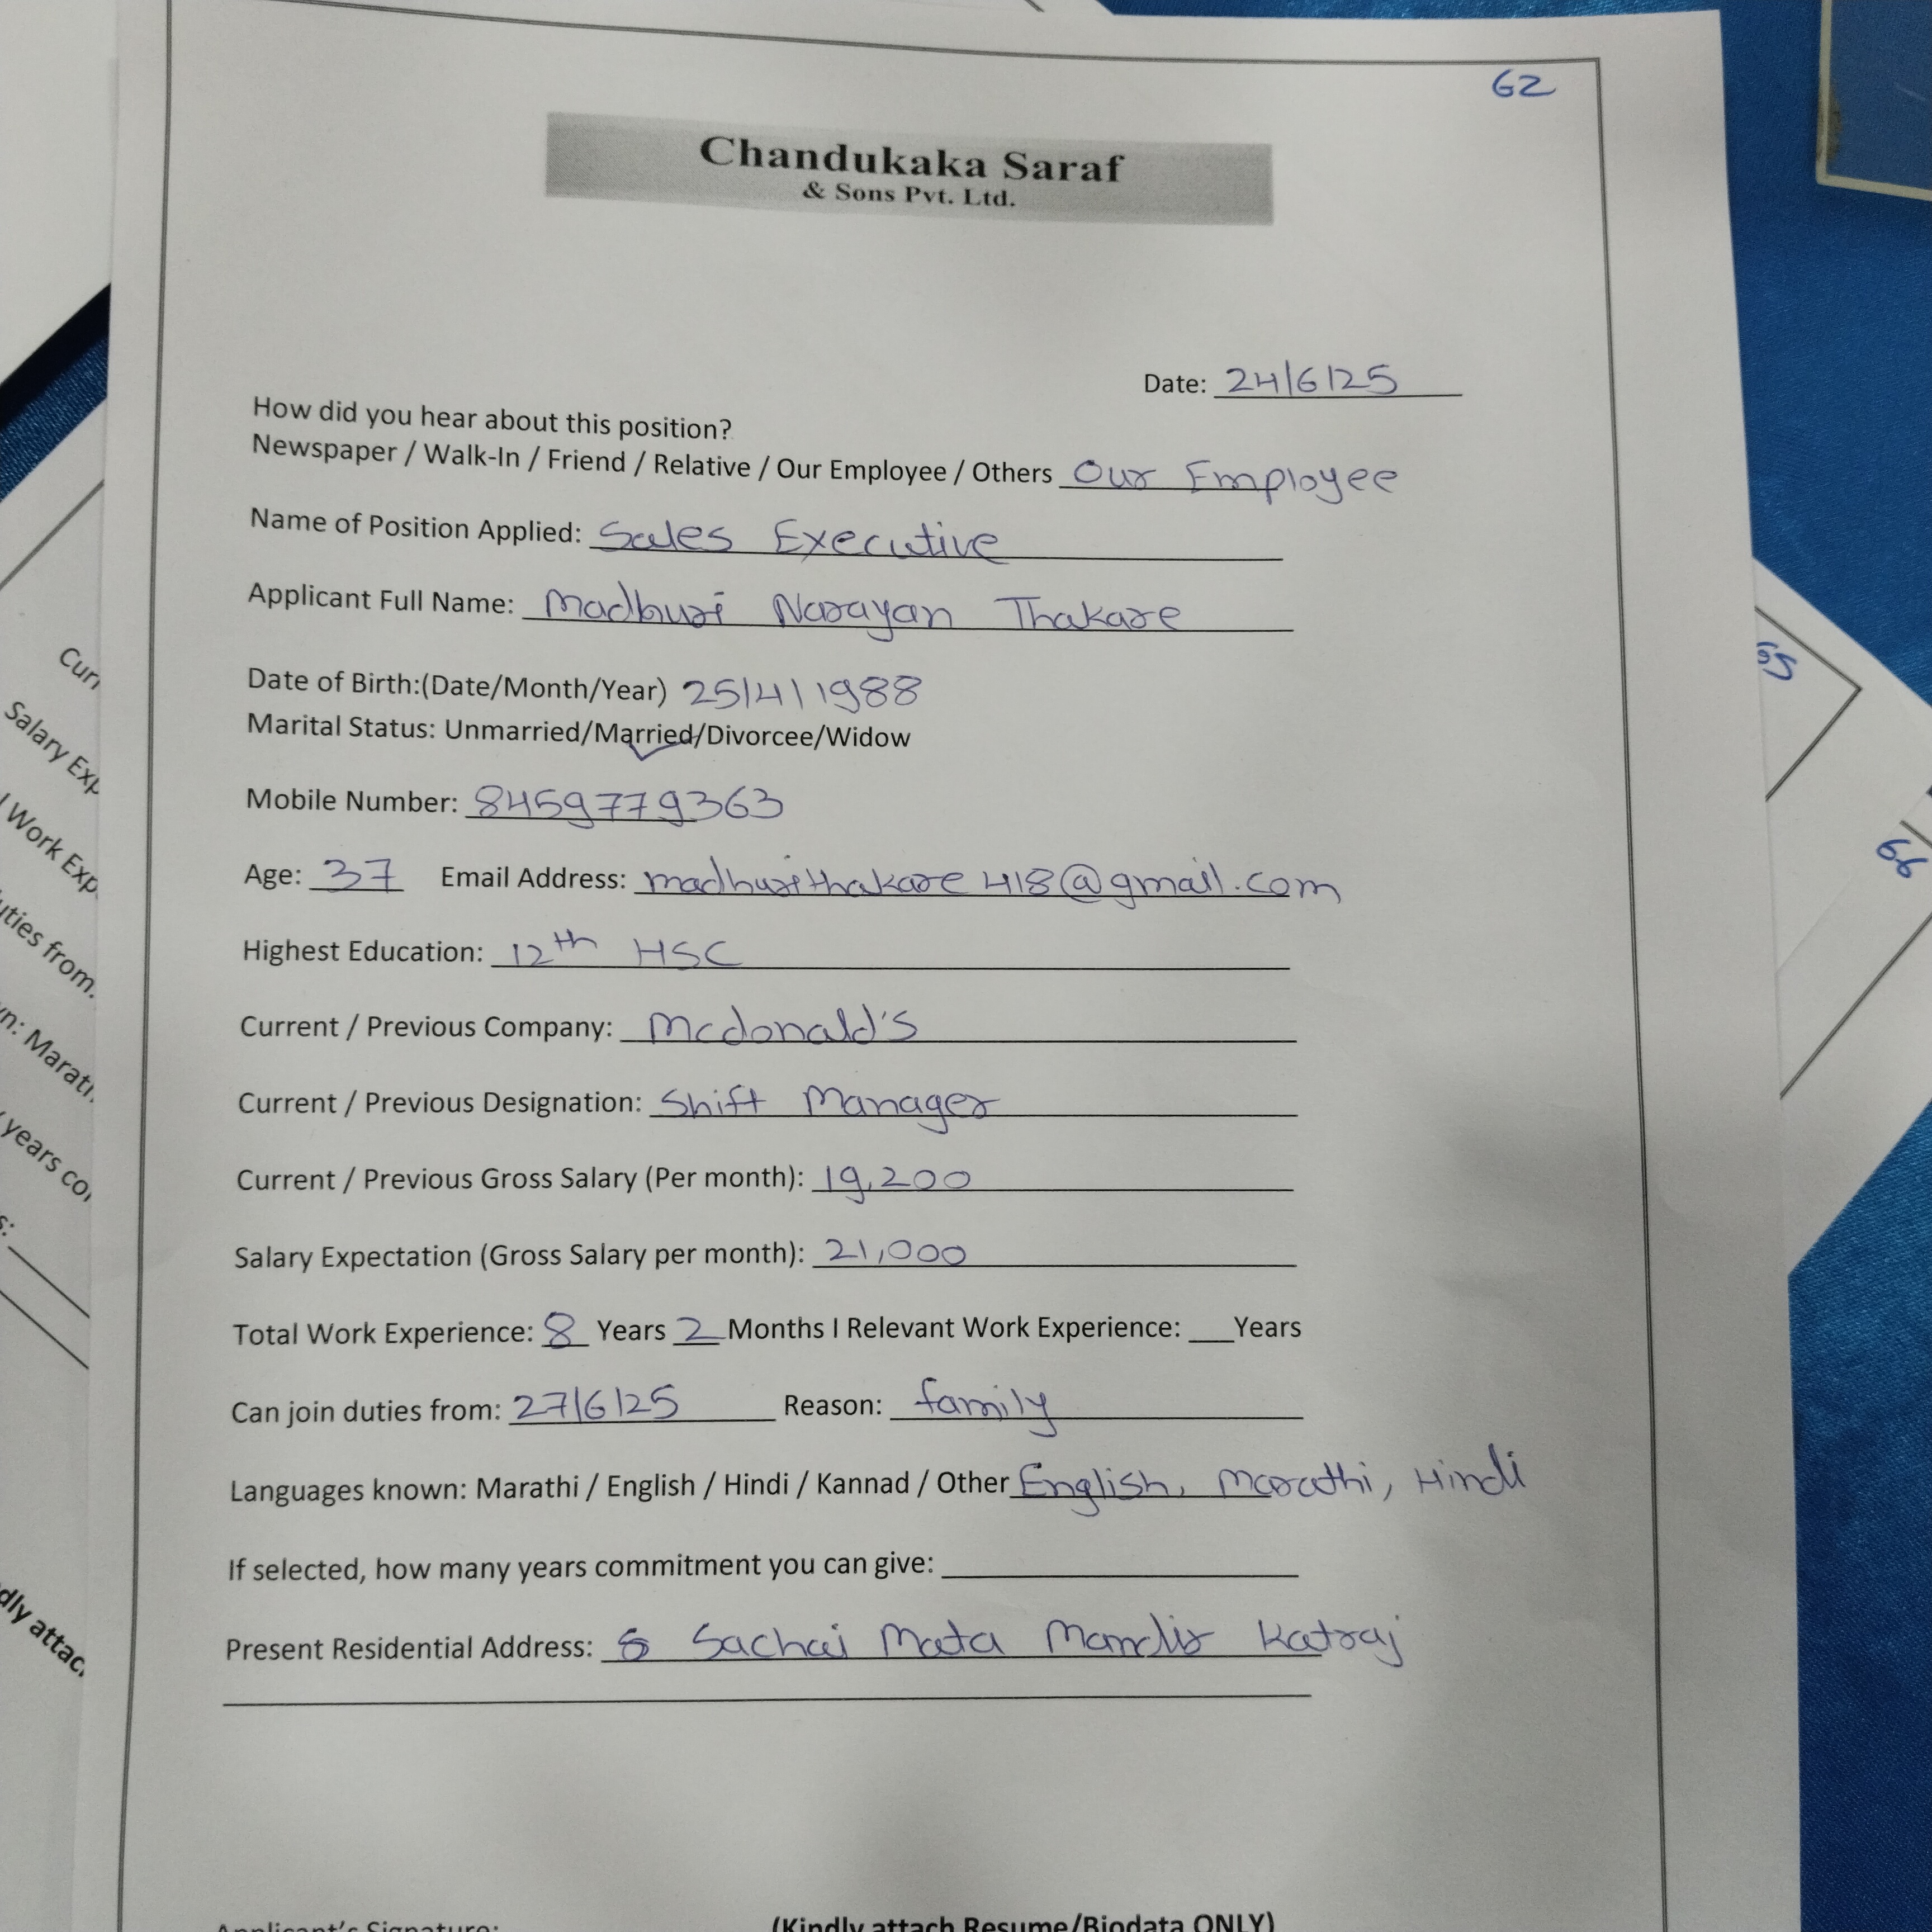 62
Chandukaka Saraf
& Sons Pvt. Ltd.
Date: 24/6/25
How did you hear about this position?
Newspaper / Walk-In / Friend / Relative / Our Employee / Others Our Employee
Name of Position Applied: Sales Executive
Applicant Full Name: Madhuri Narayan Thakare
Date of Birth:(Date/Month/Year) 25/4/1988
Marital Status: Unmarried/Married/Divorcee/Widow
Mobile Number: 8459779363
Age: 37 Email Address: madhurithakare418@gmail.com
Highest Education: 12th HSC
Current / Previous Company: Mcdonald's
Current / Previous Designation: Shift Manager
Current / Previous Gross Salary (Per month): 19,200
Salary Expectation (Gross Salary per month): 21,000
Total Work Experience: 8 Years 2 Months I Relevant Work Experience: ___Years
Can join duties from: 27/6/25 Reason: family
Languages known: Marathi / English / Hindi / Kannad / Other English, Marathi, Hindi
If selected, how many years commitment you can give:
Present Residential Address: Sachai Mata Mandir Katraj
Applicant's Signature: (Kindly attach Resume/Biodata ONLY)
65
66
Curr
Salary Exp
Work Exp
uties from.
wn: Marath
years co
dly attac